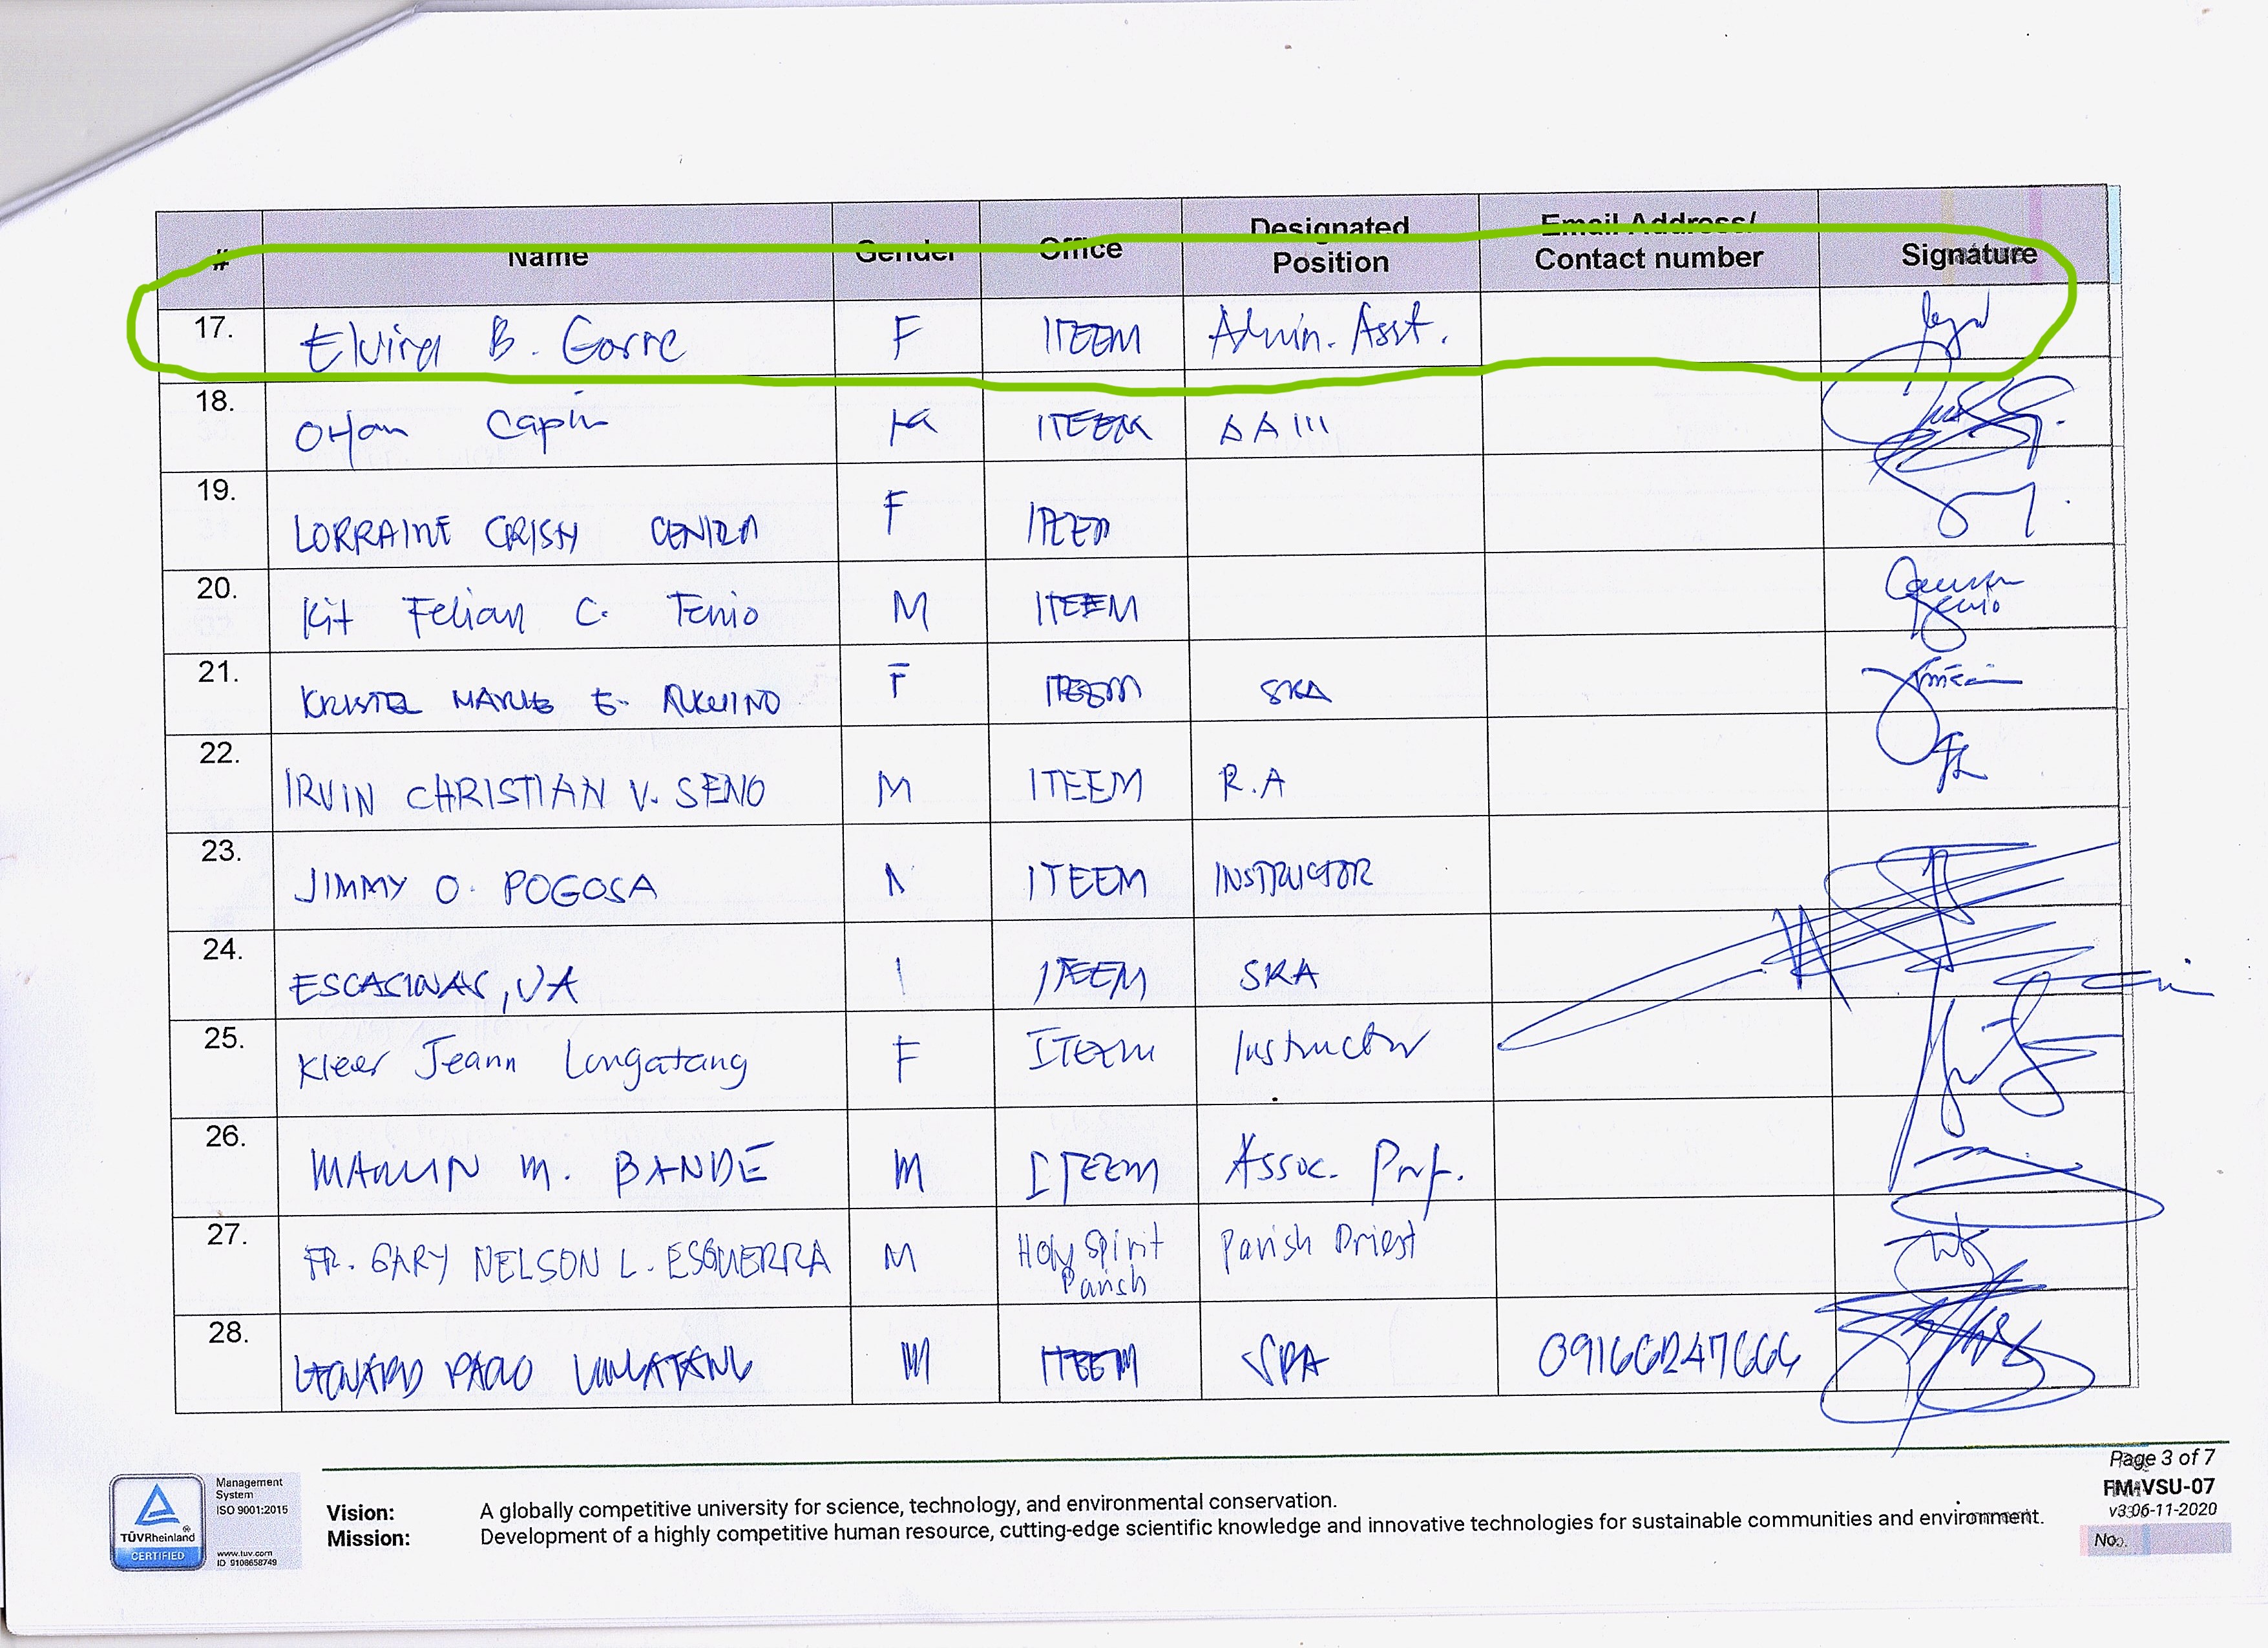 # Name Gender Office Designated Position Email Address/ Contact number Signature
17. Elvira B. Gorre F ITEEM Admin. Asst.
18. Capin M ITEEM AA III
19. LORRAINE CRISH CENIZA F ITEEM
20. Kit Felian C. Tenio M ITEEM
21. KRISTEL MARIE E. AUKUINO F ITEEM SRA
22. IRVIN CHRISTIAN V. SENO M ITEEM R.A
23. JIMMY O. POGOSA ITEEM INSTRUCTOR
24. ESCASINAS, ITEEM SRA
25. Kleer Jeann Longatang F ITEEM Instructor
26. MARLIN M. BANDE M ITEEM Assoc. Prof.
27. FR. GARY NELSON L. ESGUERRA M Holy Spirit Parish Parish Priest
28. LEONARD PAOLO M ITEEM
Page 3 of 7
Management
System
ISO 9001:2015
TÜVRheinland
CERTIFIED
www.tuv.com
ID 9108658749
Vision: A globally competitive university for science, technology, and environmental conservation.
Mission: Development of a highly competitive human resource, cutting-edge scientific knowledge and innovative technologies for sustainable communities and environment.
FM-VSU-07
v3 06-11-2020
No.